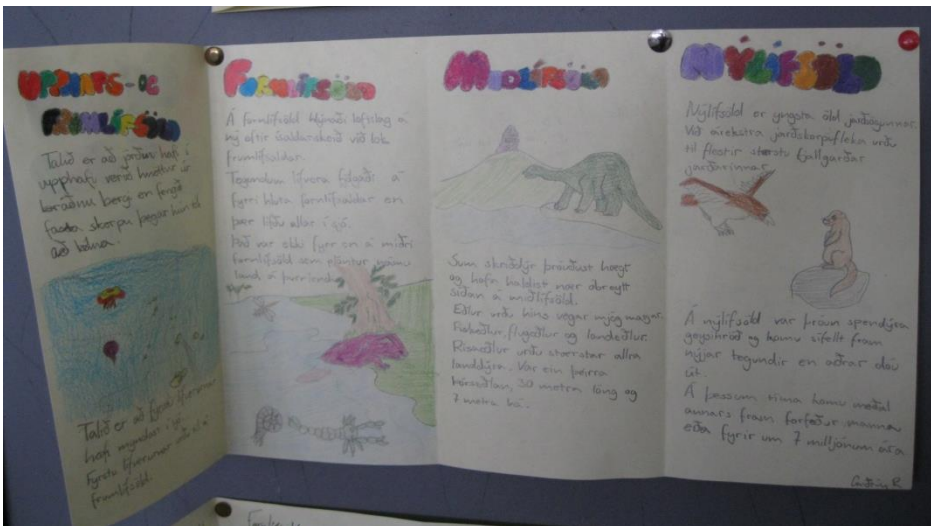 UPPHAFS- OG
FRUMLÍFSÖLD
Talið er að jörðin hafi í
upphafi verið hnöttur úr
bráðnu bergi en fengið
fasta skorpu þegar hún fór
að kólna.
Talið er að fyrstu lífverurnar
hafi myndast í sjó.
Fyrstu lífverurnar urðu til á
frumlífsöld.
FORNLÍFSÖLD
Á fornlífsöld hlýnaði loftslag á
ný eftir ísaldarskeið við lok
frumlífsaldar.
Tegundum lífvera fjölgaði á
fyrri hluta fornlífsaldar en
þær lifðu allar í sjó.
Það var ekki fyrr en á miðri
fornlífsöld sem plöntur námu
land á þurrlendi
MIÐLÍFSÖLD
Sum skriðdýr þróuðust hægt
og hafa haldist nær óbreytt
síðan á miðlífsöld.
Eðlur urðu hins vegar mjög margar.
Flugeðlur og landeðlur.
Risaeðlur urðu stærstar allra
landdýra. Var ein þeirra
30 metra löng og
7 metra há.
NÝLÍFSÖLD
Nýlífsöld er yngsta öld jarðsögunnar.
Við árekstra jarðskorpufleka urðu
til flestir stærstu fjallgarðar
jarðarinnar
Á nýlífsöld var þróun spendýra
geysihröð og komu sífellt fram
nýjar tegundir en aðrar dóu
út.
Á þessum tíma komu meðal
annars fram forfeður manna
eða fyrir um 7 milljónum ára